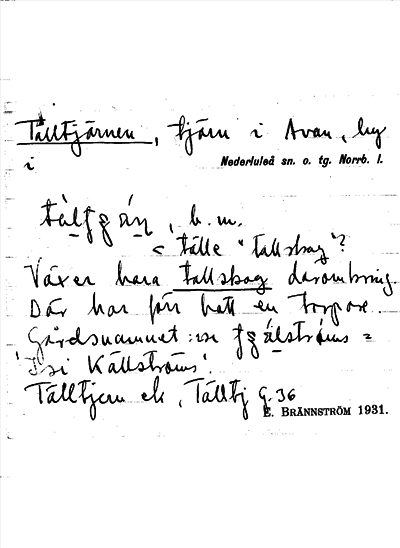 Tålltjärnen, tjärn i Avan, by
i Nederluleå sn. o. tg. Norrb. l.
b. m.
< tålle "tallskog"?
Växer bara tallskog däromkring.
Där har förr bott en torpare.
Gårdsnamnet:
Källströms'.
Tålltjern ek, Tålltj G. 36
E. BRÄNNSTRÖM 1931.